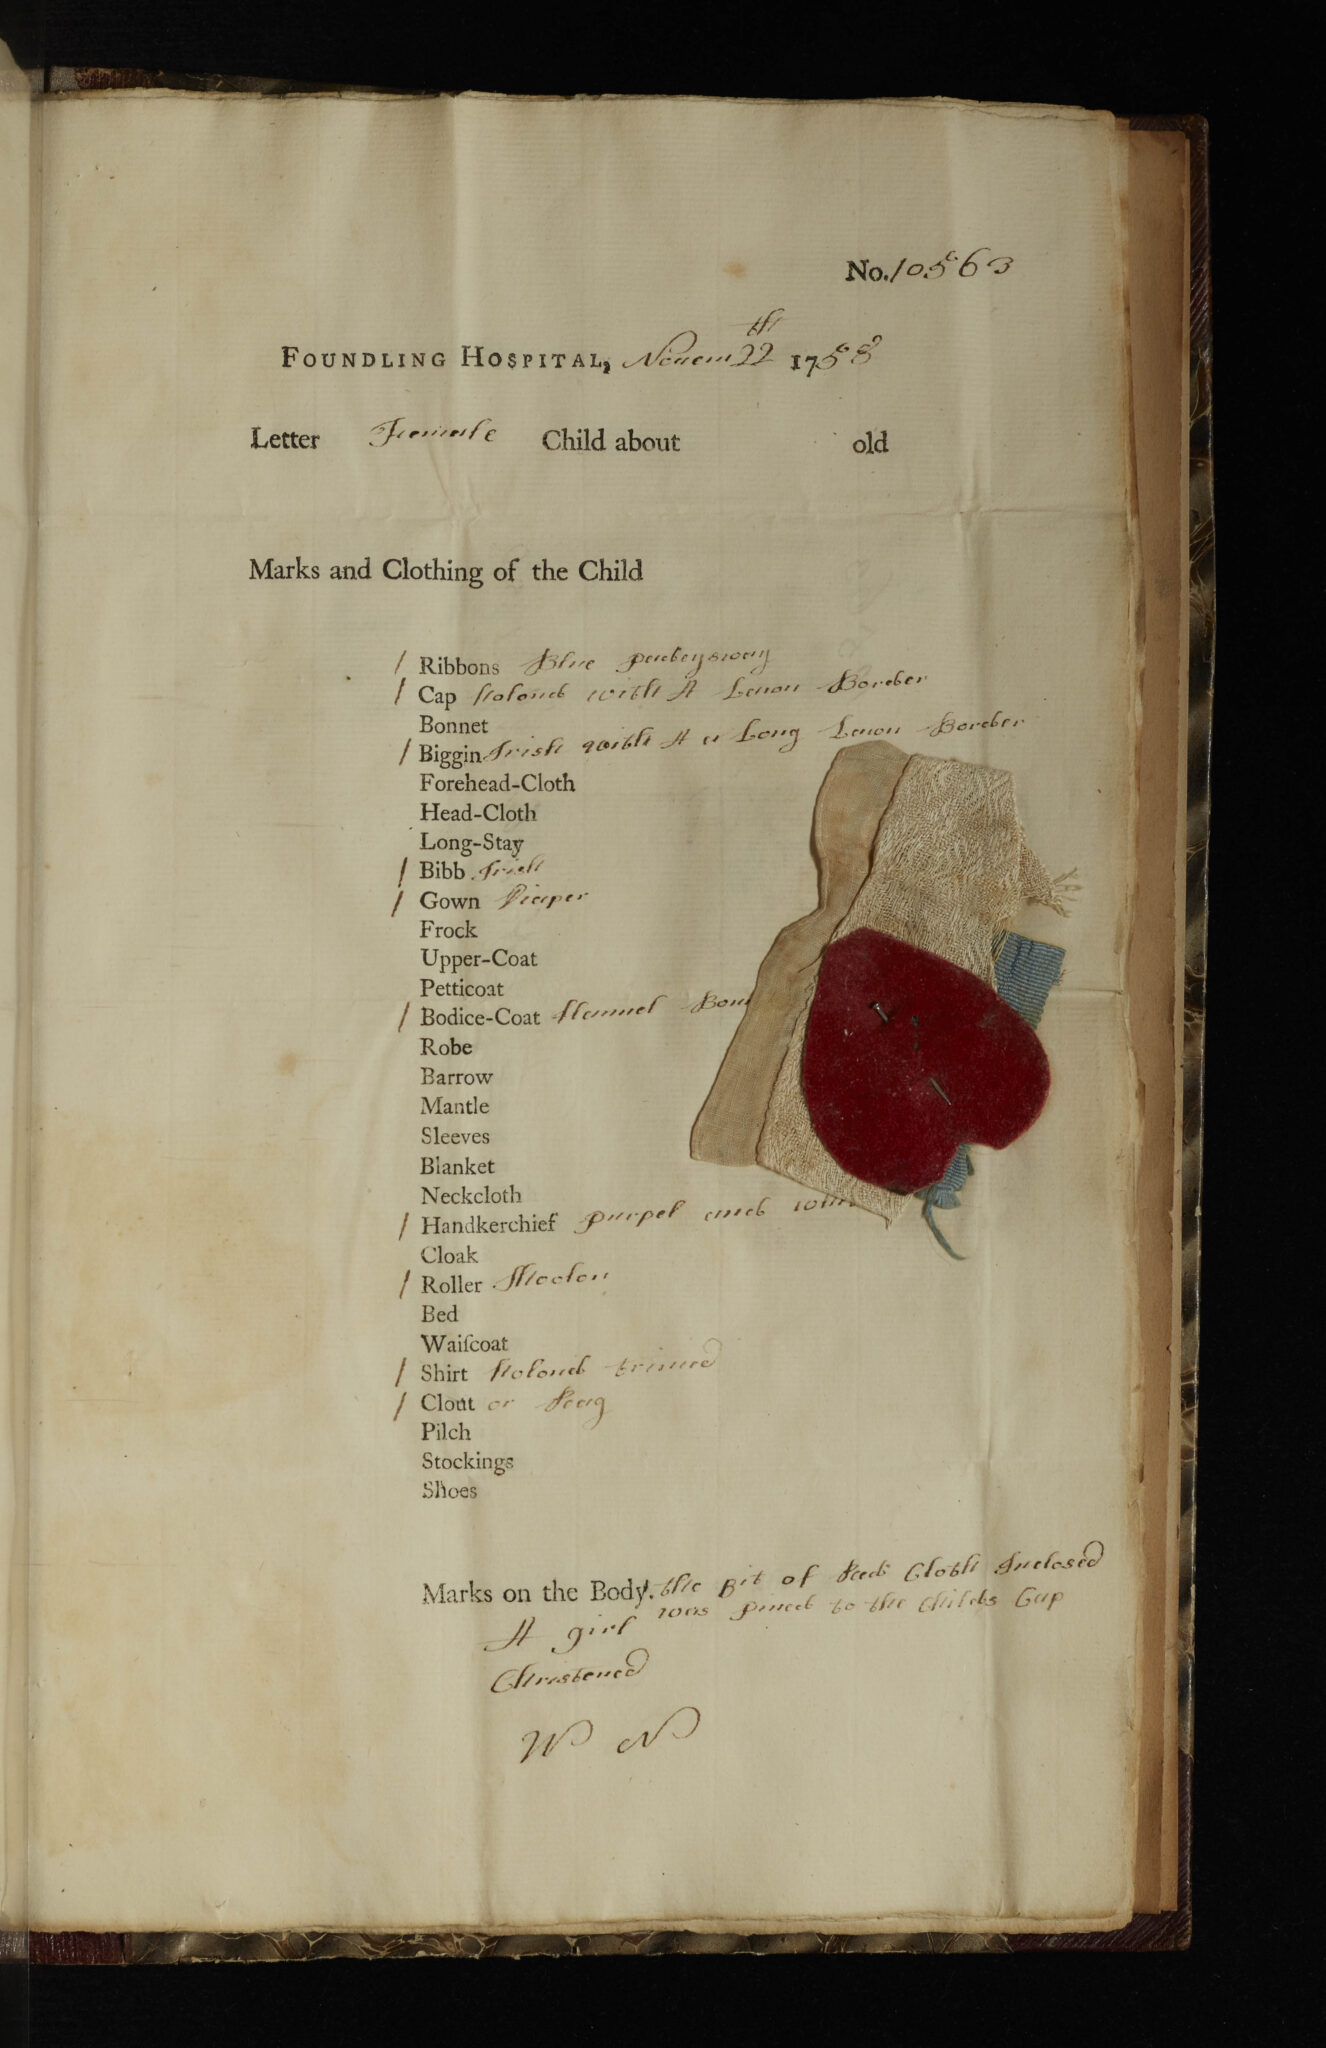 No. 10563
FOUNDLING HOSPITAL, Novem 22th 1758
Letter Female Child about old
Marks and Clothing of the Child
/ Ribbons Blue
/ Cap holond with A Lawn Border
Bonnet
/ Biggin Irish with A Long Lawn Border
Forehead-Cloth
Head-Cloth
Long-Stay
/ Bibb Irish
/ Gown Dieaper
Frock
Upper-Coat
Petticoat
/ Bodice-Coat flannel
Robe
Barrow
Mantle
Sleeves
Blanket
Neckcloth
/ Handkerchief purpel and
Cloak
/ Roller
Bed
Waiſcoat
/ Shirt holond trimed
/ Clout or Raag
Pilch
Stockings
Shoes
Marks on the Body. the Bit of Red Cloth Inclosed
was pined to the Childs Cap
A girl
Christened
W N